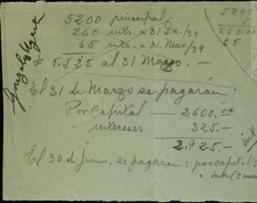 5200 principal
260 ints. a 31 Dic./39
65 ints. a 31 Mar/39
# 5.525 al 31 Marzo.—
El 31 de Marzo se pagarán:
Por Capital — 2,600.00
" intereses 325.—
2,925.—
El 30 de Junio, se pagarán: por capital
" ints
5200
260.00
65